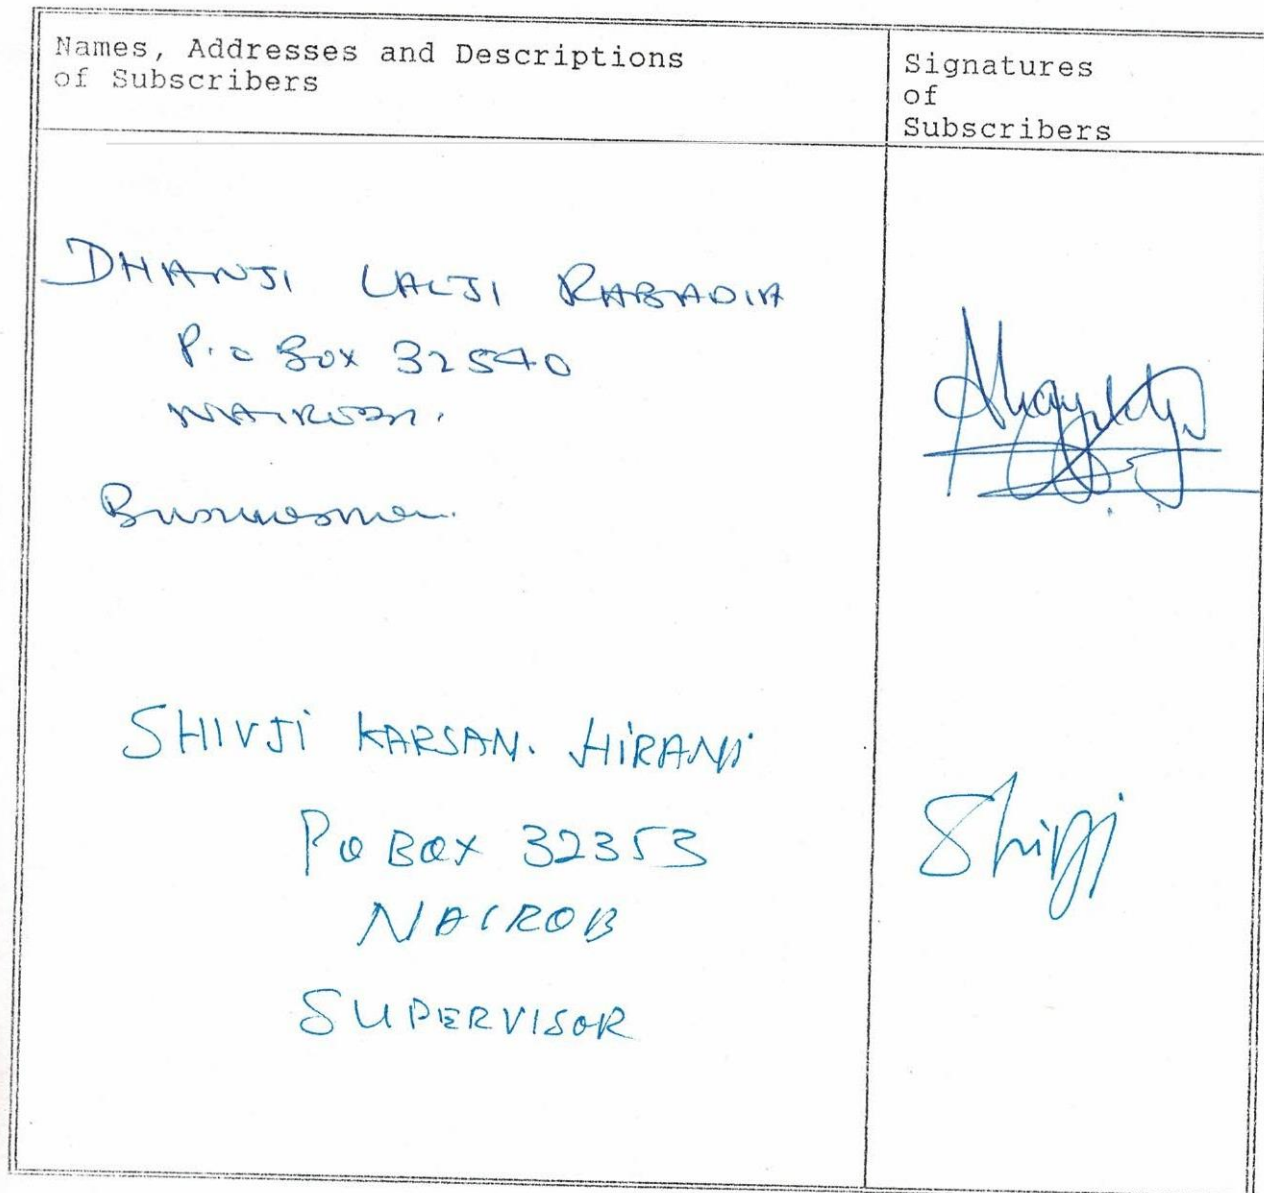 Names, Addresses and Descriptions
of Subscribers
Signatures
of
Subscribers
DHANJI LALJI RABADIA
P.O Box 32540
NAIROBI.
Businessman.
SHIVJI KARSAN. HIRANI
PO BOX 32353
NAIROB
SUPERVISOR
Shivji